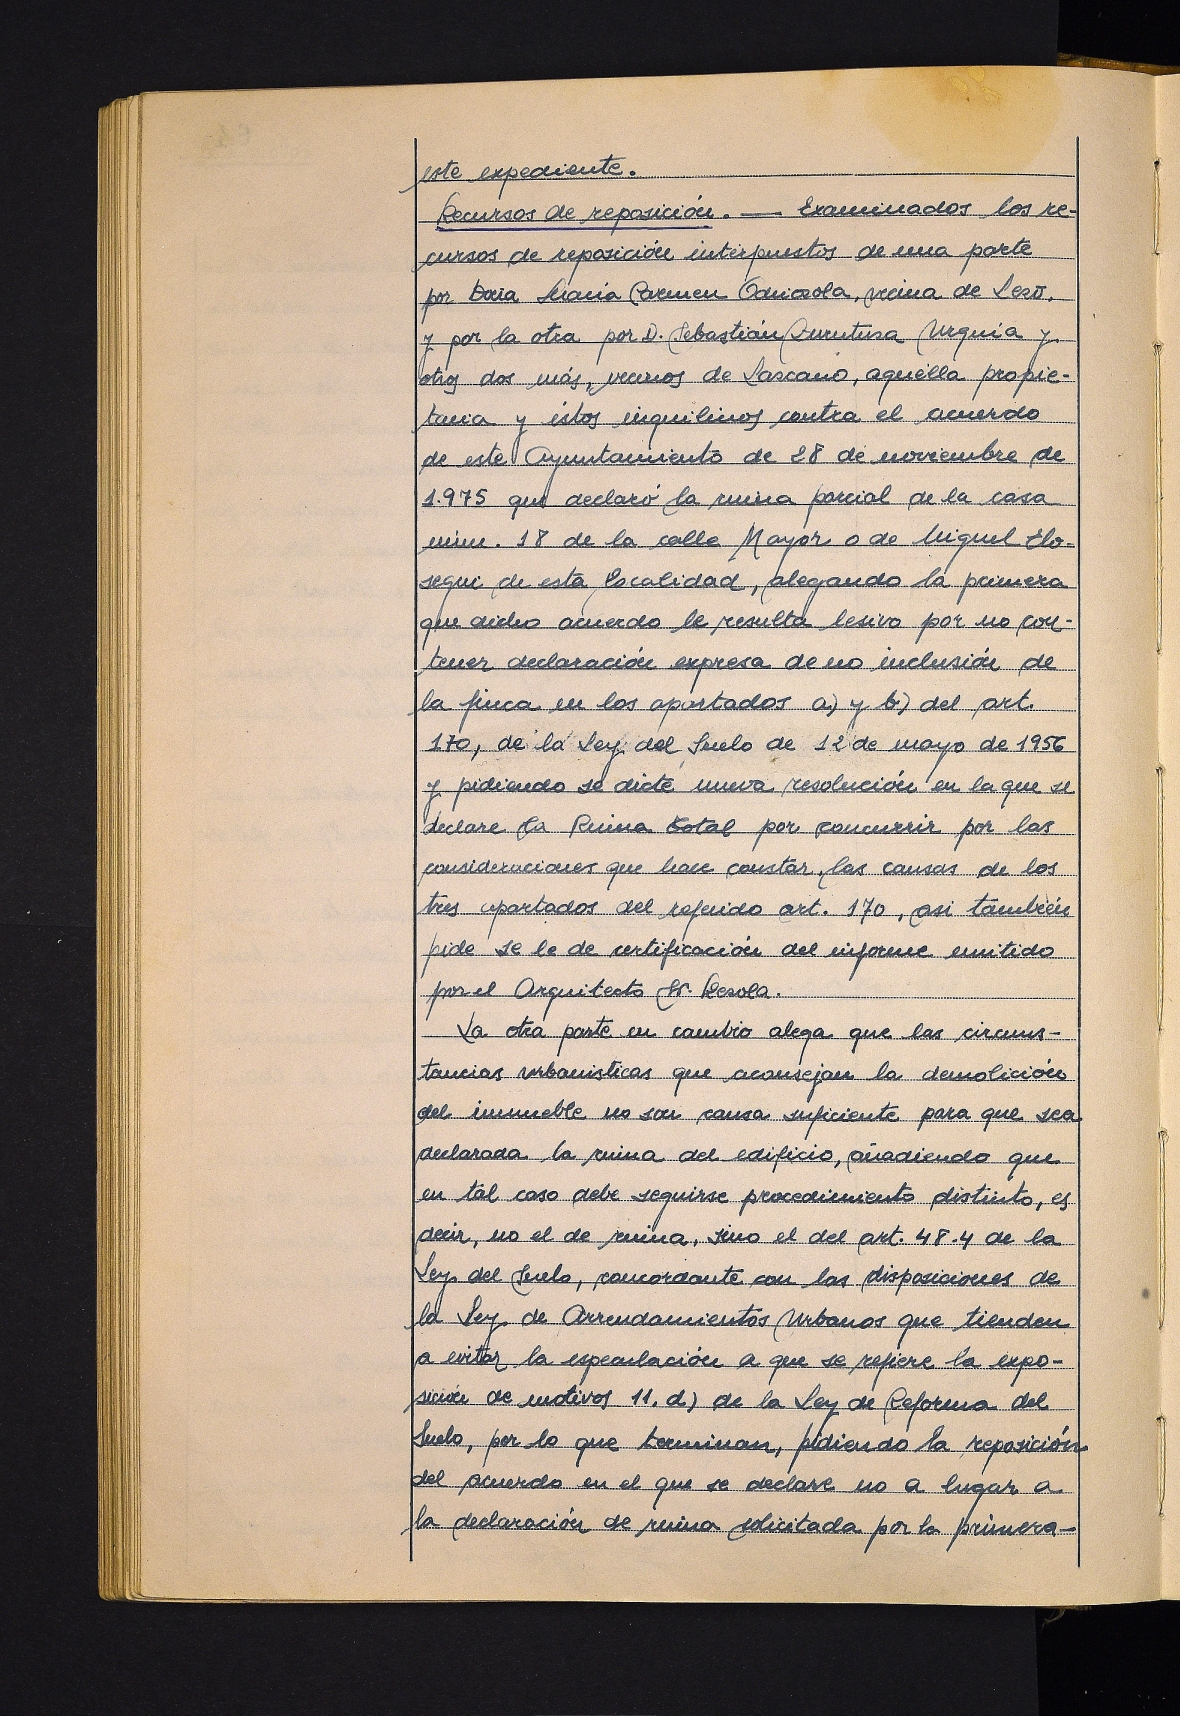 este expediente.
Recursos de reposición. — Examinados los re-
cursos de reposición interpuestos de una parte
por Doña María Carmen Odriozola, vecina de Lezo,
y por la otra por D. Sebastián Urquía y
otros dos más, vecinos de Lazcano, aquélla propie-
taria y éstos inquilinos contra el acuerdo
de este Ayuntamiento de 28 de noviembre de
1.975 que declaró la ruina parcial de la casa
núm. 18 de la calle Mayor o de Miguel Elo-
segui de esta localidad, alegando la primera
que dicho acuerdo le resulta lesivo por no con-
tener declaración expresa de no inclusión de
la finca en los apartados a) y b) del art.
170, de la Ley del Suelo de 12 de mayo de 1956
y pidiendo se dicte nueva resolución en la que se
declare la Ruina Total por concurrir por las
consideraciones que hace constar, las causas de los
tres apartados del referido art. 170, asi también
pide se le de certificación del informe emitido
por el Arquitecto Sr. Rezola.
La otra parte en cambio alega que las circuns-
tancias urbanísticas que aconsejan la demolición
del inmueble no son causa suficiente para que sea
declarada la ruina del edificio, añadiendo que
en tal caso debe seguirse procedimiento distinto, es
decir, no el de ruina, sino el del art. 48.4 de la
Ley del Suelo, concordante con las disposiciones de
la Ley de Arrendamientos Urbanos que tienden
a evitar la especulación a que se refiere la expo-
sición de motivos 11. d) de la Ley de Reforma del
Suelo, por lo que terminan, pidiendo la reposición
del acuerdo en el que se declare no a lugar a
la declaración de ruina solicitada por la primera-